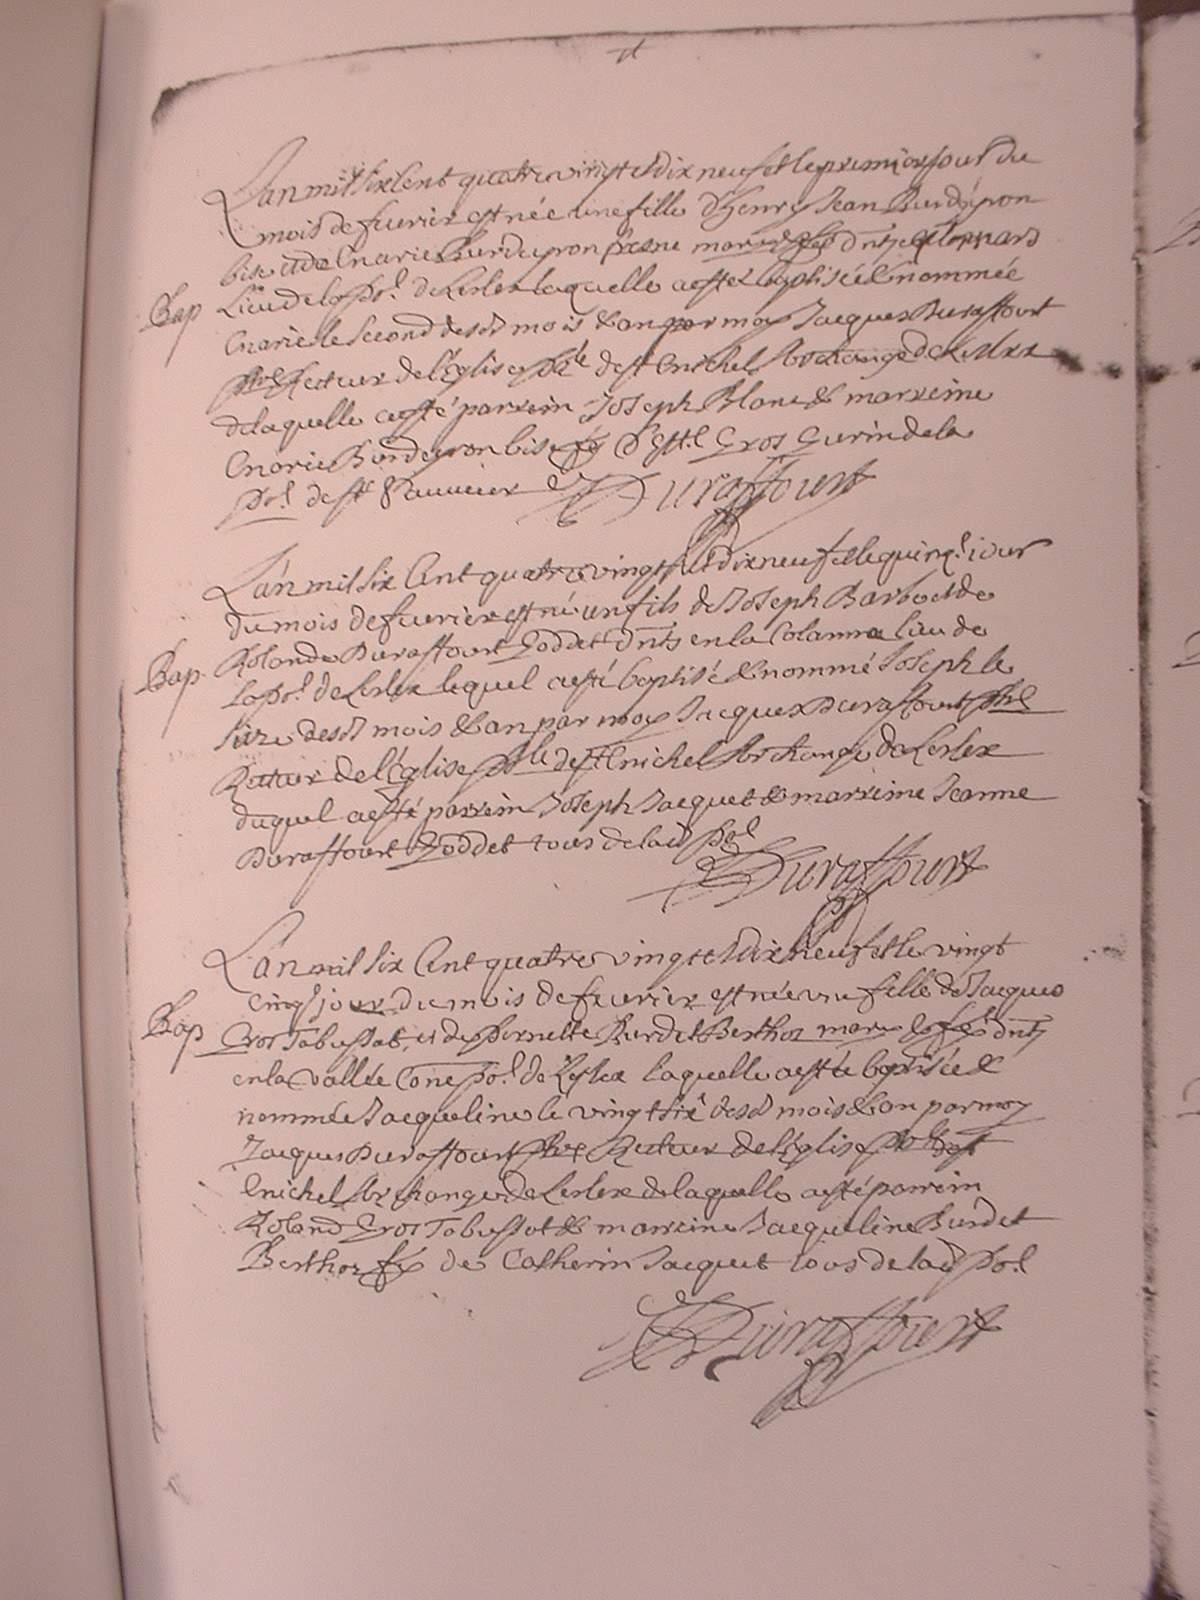 L'an mil six Cent quatre vingt et dix neuf et le premier jour du
mois de feurier est née une fille d'henry Jean Burdeyron
bise et de marie Burdeyron mariés
Bap
Lieu de la po.l de Leslex laquelle a esté baptisée & nommée
marie le second desd mois & an par moy Jacques Duraffourt
Recteur de l'Eglise de st michel Archange de Leslex
de laquelle a esté parrein Joseph Blanc & marreine
marie Burdeyron bise Gros Gurin de la
po.l de st Januier
Duraffourt
L'an mil six Cent quatre vingt et dix neuf et le quinz.e jour
du mois de feurier est né un fils de Joseph Barbo et de
Rolande Duraffourt Goddet en la Colanna lieu de
Bap
la po.l de Leslex lequel a esté baptisé & nommé Joseph le
size desd mois & an par moy Jacques Duraffourt
Recteur de l'Eglise de st michel Archange de Leslex
duquel a esté parrein Joseph Jacquet & marreine Jeanne
Duraffourt Goddet tous de lad po.l
Duraffourt
L'an mil six Cent quatre vingt et dix neuf et le vingt
cinq.e jour du mois de feurier est née une fille de Jacques
Bap
Gros Tabussat, et de pernette Burdet Berthoz
en la vallée po.l de Leslex laquelle a esté baptisée &
nommée Jacqueline le vingt six desd mois & an par moy
Jacques Duraffourt Recteur de l'Eglise st
michel Archange de Leslex de laquelle a esté parrein
Roland Gros Tabussat & marreine Jacqueline Burdet
Berthoz de Catherin Jacquet tous de lad po.l
Duraffourt